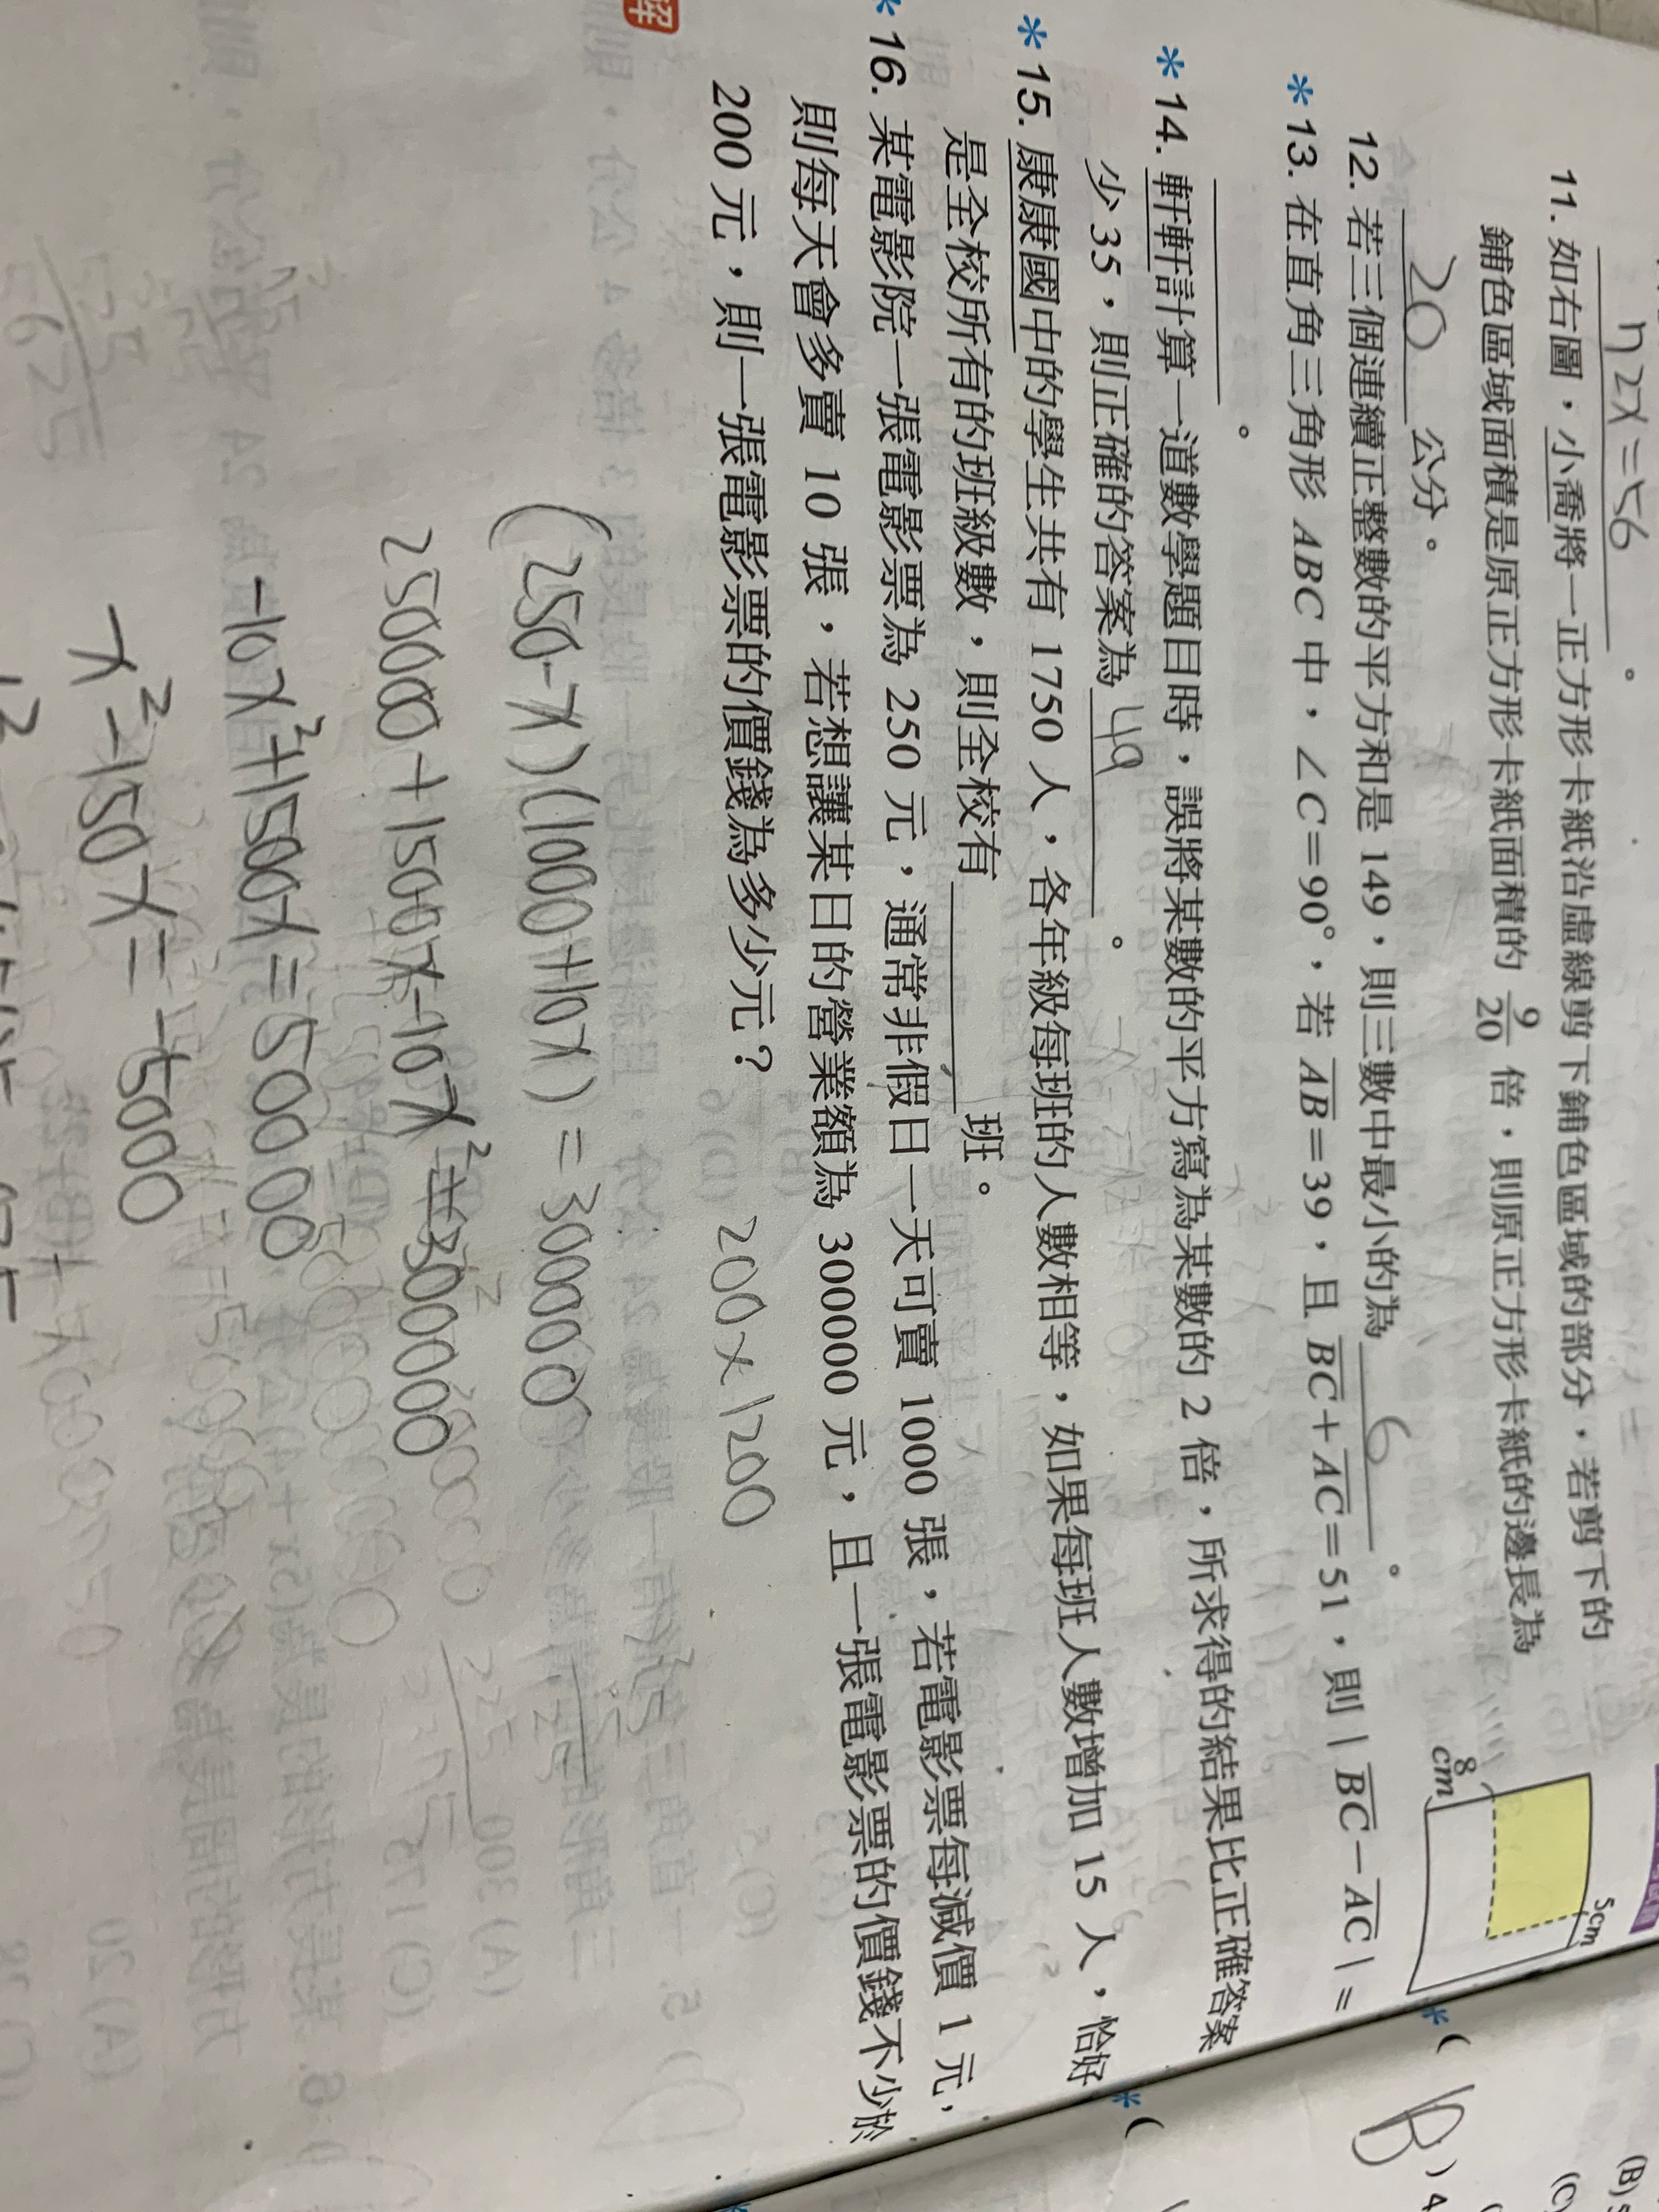 72x=56。
11. 如右圖，小喬將一正方形卡紙沿虛線剪下鋪色區域的部分，若剪下的
鋪色區域面積是原正方形卡紙面積的 9/20 倍，則原正方形卡紙的邊長為
20 公分。
8 cm
5cm
12. 若三個連續正整數的平方和是 149，則三數中最小的為 6 。
*13. 在直角三角形 ABC 中，∠C=90°，若 AB=39，且 BC+AC=51，則 | BC-AC | =
。
*14. 軒軒計算一道數學題目時，誤將某數的平方寫為某數的 2 倍，所求得的結果比正確答案
少 35，則正確的答案為 49 。
*15. 康康國中的學生共有 1750 人，各年級每班的人數相等，如果每班人數增加 15 人，恰好
是全校所有的班級數，則全校有 班。
*16. 某電影院一張電影票為 250 元，通常非假日一天可賣 1000 張，若電影票每減價 1 元，
則每天會多賣 10 張，若想讓某日的營業額為 300000 元，且一張電影票的價錢不少於
200 元，則一張電影票的價錢為多少元？
200×1200
解
(250-x)(1000+10x)=300000
-10x²+1500x=50000
x²-150x=-5000
625
*(
B ) 4
*(
(B)
(C)